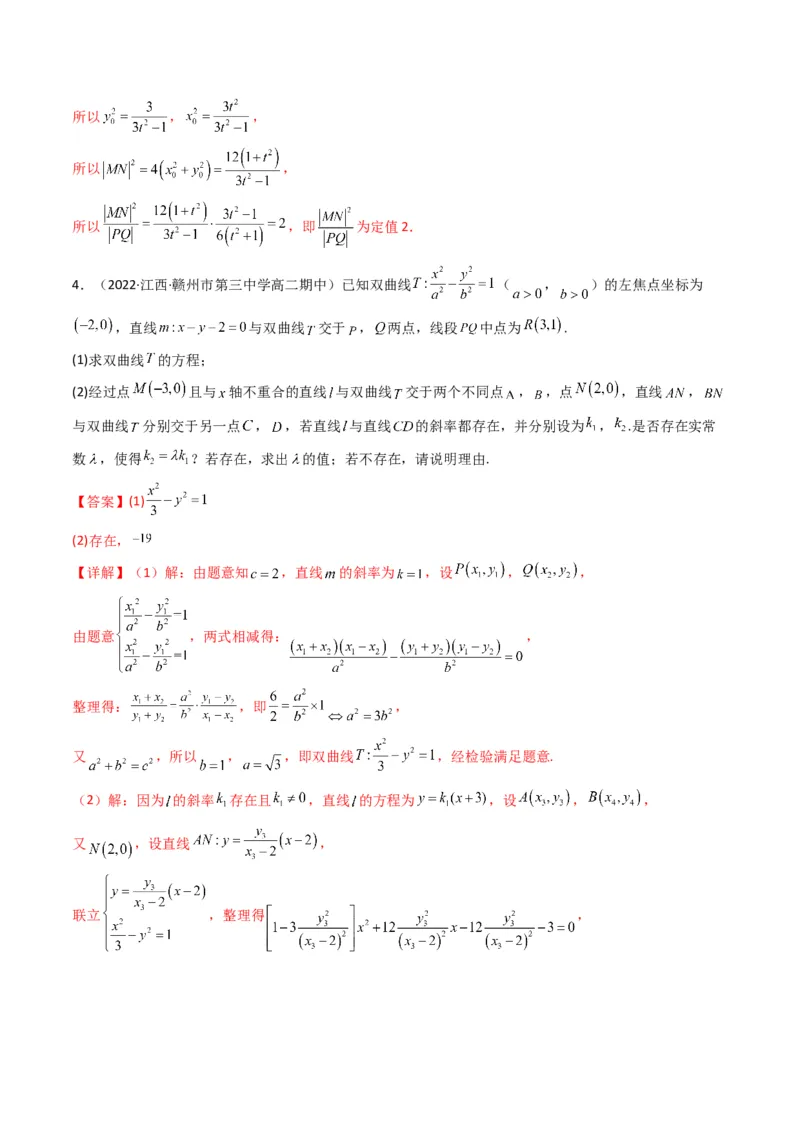 所以 $y_0^2=\frac{3}{3t^2-1}$，$x_0^2=\frac{3t^2}{3t^2-1}$，
所以 $|MN|^2=4(x_0^2+y_0^2)=\frac{12(1+t^2)}{3t^2-1}$，
所以 $\frac{|MN|^2}{|PQ|}=\frac{12(1+t^2)}{3t^2-1}\cdot\frac{3t^2-1}{6(t^2+1)}=2$，即 $\frac{|MN|^2}{|PQ|}$ 为定值2．
4．（2022·江西·赣州市第三中学高二期中）已知双曲线 $T:\frac{x^2}{a^2}-\frac{y^2}{b^2}=1$（$a>0$，$b>0$）的左焦点坐标为
$(-2,0)$，直线 $m:x-y-2=0$ 与双曲线 $T$ 交于 $P$，$Q$ 两点，线段 $PQ$ 中点为 $R(3,1)$．
(1)求双曲线 $T$ 的方程；
(2)经过点 $M(-3,0)$ 且与 $x$ 轴不重合的直线 $l$ 与双曲线 $T$ 交于两个不同点 $A$，$B$，点 $N(2,0)$，直线 $AN$，$BN$
与双曲线 $T$ 分别交于另一点 $C$，$D$，若直线 $l$ 与直线 $CD$ 的斜率都存在，并分别设为 $k_1$，$k_2$.是否存在实常
数 $\lambda$，使得 $k_2=\lambda k_1$？若存在，求出 $\lambda$ 的值；若不存在，请说明理由.
【答案】(1) $\frac{x^2}{3}-y^2=1$
(2)存在，$-19$
【详解】（1）解：由题意知 $c=2$，直线 $m$ 的斜率为 $k=1$，设 $P(x_1,y_1)$，$Q(x_2,y_2)$，
由题意 $\begin{cases}\frac{x_1^2}{a^2}-\frac{y_1^2}{b^2}=1\\\frac{x_1^2}{a^2}-\frac{y_1^2}{b^2}=1\end{cases}$，两式相减得：$\frac{(x_1+x_2)(x_1-x_2)}{a^2}-\frac{(y_1+y_2)(y_1-y_2)}{b^2}=0$，
整理得：$\frac{x_1+x_2}{y_1+y_2}=\frac{a^2}{b^2}\cdot\frac{y_1-y_2}{x_1-x_2}$，即 $\frac{6}{2}=\frac{a^2}{b^2}\times1\Leftrightarrow a^2=3b^2$，
又 $a^2+b^2=c^2$，所以 $b=1$，$a=\sqrt{3}$，即双曲线 $T:\frac{x^2}{3}-y^2=1$，经检验满足题意.
（2）解：因为 $l$ 的斜率 $k_1$ 存在且 $k_1\neq0$，直线 $l$ 的方程为 $y=k_1(x+3)$，设 $A(x_3,y_3)$，$B(x_4,y_4)$，
又 $N(2,0)$，设直线 $AN:y=\frac{y_3}{x_3-2}(x-2)$，
联立 $\begin{cases}y=\frac{y_3}{x_3-2}(x-2)\\\frac{x^2}{3}-y^2=1\end{cases}$，整理得 $\left[1-3\frac{y_3^2}{(x_3-2)^2}\right]x^2+12\frac{y_3^2}{(x_3-2)^2}x-12\frac{y_3^2}{(x_3-2)^2}-3=0$，